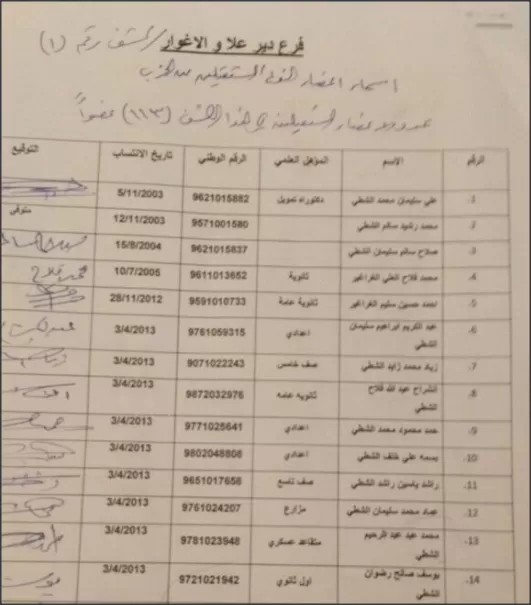 فرع دير علا و الاغوار / كشف رقم (١)
اسماء اعضاء المستقيلين من الحزب
عدد الاعضاء المستقيلين في هذا الكشف (١١٣) عضواً
الرقم الاسم المؤهل العلمي الرقم الوطني تاريخ الانتساب التوقيع
1- علي سليمان محمد الشطي دكتوراه تمويل 9621015882 5/11/2003
2- محمد رشيد سالم الشطي 9571001580 12/11/2003 متوفى
3- صلاح سالم سليمان الشطي 9621015837 15/8/2004
4- محمد فلاح العلي الغراغير ثانوية 9611013652 10/7/2005
5- احمد حسين سليم الغراغير ثانوية عامة 9591010733 28/11/2012
6- عبد الكريم ابراهيم سليمان الشطي اعدادي 9761059315 3/4/2013
7- زياد محمد زايد الشطي صف خامس 9071022243 3/4/2013
8- انشراح عبد الله فلاح الشطي ثانويه عامه 9872032976 3/4/2013
9- حمد محمود محمد الشطي اعدادي 9771025641 3/4/2013
10- بسمه علي خلف الشطي اعدادي 9802048808 3/4/2013
11- راشد ياسين راشد الشطي صف تاسع 9651017656 3/4/2013
12- عماد محمد سليمان الشطي مزارع 9761024207 3/4/2013
13- محمد عيد عبد الرحيم الشطي متقاعد عسكري 9781023948 3/4/2013
14- يوسف صالح رضوان الشطي اول ثانوي 9721021942 3/4/2013